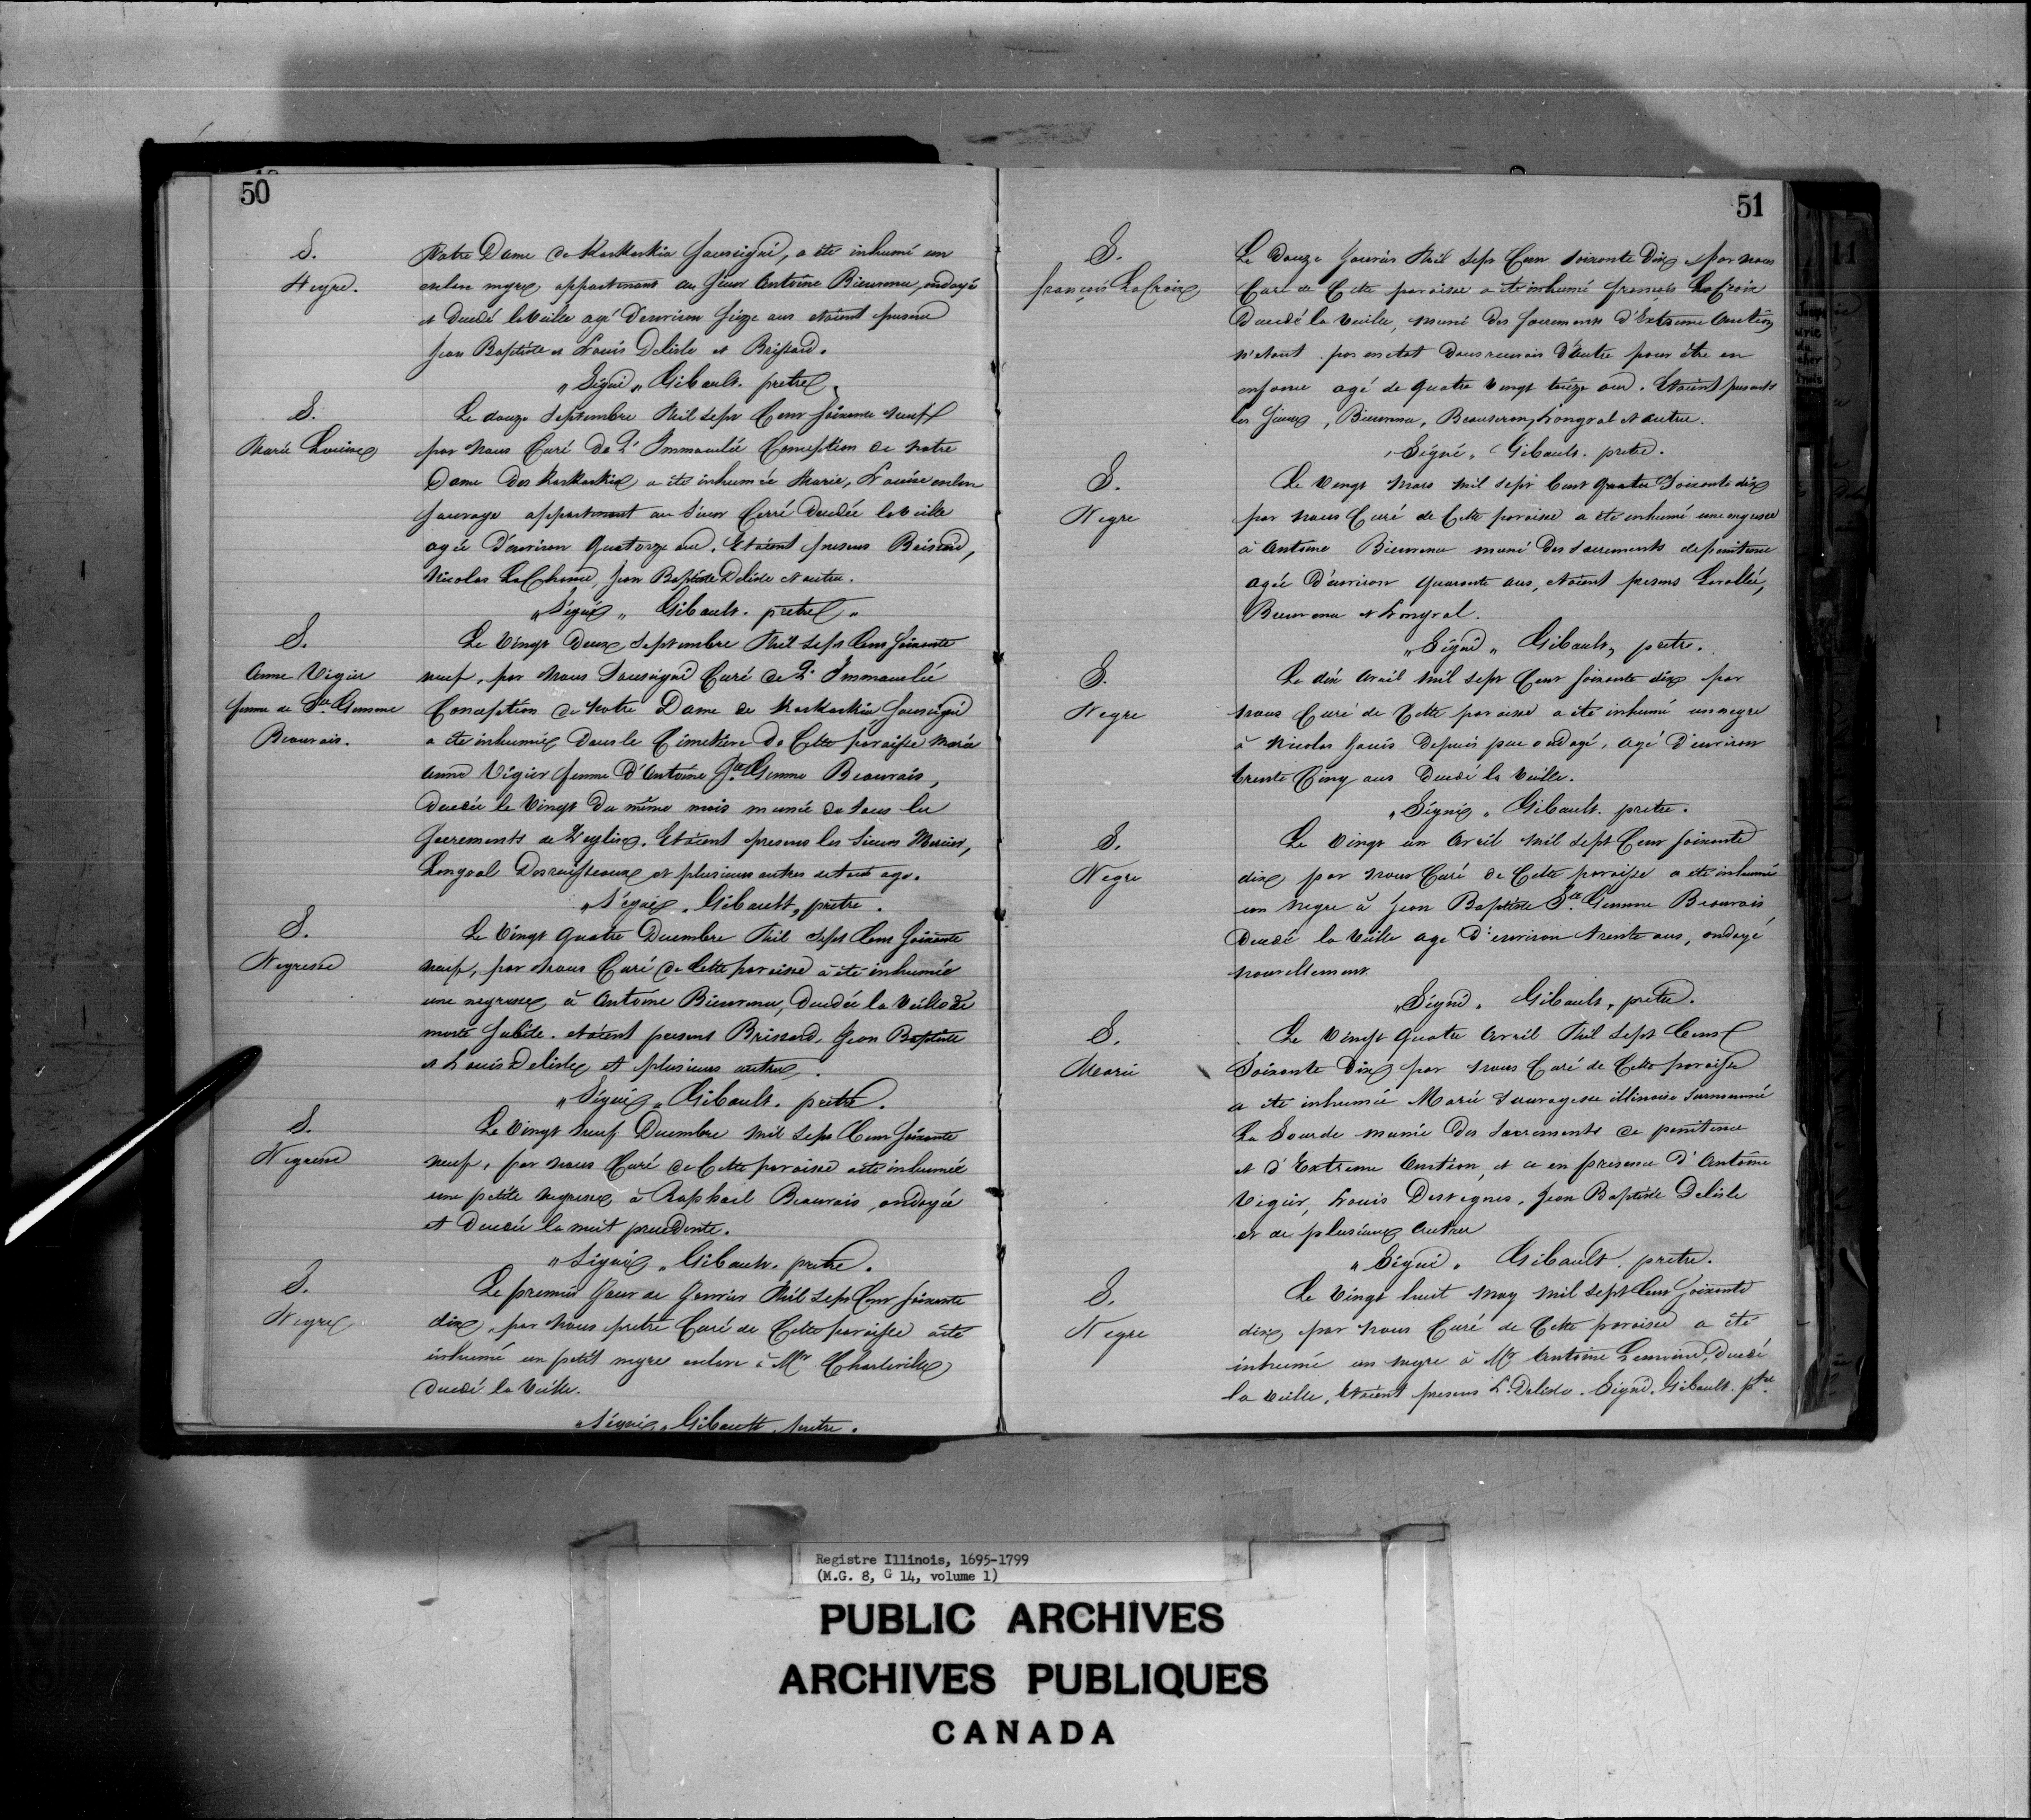 50
S.
Negre.
Notre Dame de Kaskaskia soussigné, a été inhumé un
esclave negre appartenant au Sieur Antoine Bienvenu, ondoyé
et decedé la veille agé d'environ seize ans etoient presens
Jean Baptiste et Louis Delisle et Brissard.
"Signé" Gibault. pretre.
S.
Marie Louise
Le douze Septembre Mil sept Cent soixante neuf
par nous Curé de L'Immaculée Conception de notre
Dame des Kaskaskia a été inhumée Marie, Louise esclave
sauvage appartenant au Sieur Cerré decedée la veille
agée d'environ quatorze ans. Etoient presens Brisard,
Nicolas LaChance, Jean Baptiste Delisle et autres.
"Signé" Gibault. pretre"
S.
Anne Vigier
femme de Ste Gemme
Beauvais.
Le vingt deux septembre Mil sept Cens soixante
neuf, par nous soussigné Curé de L'Immaculée
Conception de Notre Dame de Kaskaskia, soussigné
a été inhumée dans le Cimetiere de Cette paroisse Marie
Anne Vigier femme d'Antoine Ste Gemme Beauvais,
decedée le vingt du même mois munie de tous les
sacrements de L'eglise. Etoient presens les Sieurs Mercier,
Longval Desruisseaux et plusieurs autres
"Signé" Gibault, pretre.
S.
Negresse
Le vingt quatre Decembre Mil sept Cens soixante
neuf, par nous Curé de Cette paroisse a été inhumée
une negresse à Antoine Bienvenu, decedée la veille de
morte subite. etoient presens Brissard, Jean Baptiste
et Louis Delisle et plusieurs autres.
"Signé" Gibault. pretre.
S.
Negresse
Le vingt neuf Decembre mil sept Cens soixante
neuf, par nous Curé de Cette paroisse a été inhumée
une petite negresse à Raphael Beauvais, ondoyée
et decedée la nuit precedente.
"Signé" Gibault. pretre.
S.
Negre
Le premier Jour de Janvier Mil sept Cens soixante
dix, par nous pretre Curé de Cette paroisse a été
inhumé un petit negre esclave à Mr Charleville
decedé la veille.
"Signé" Gibault. pretre.
51
S.
françois LaCroix
Le douze Janvier Mil sept Cens soixante Dix, par nous
Curé de Cette paroisse a été inhumé françois LaCroix
Decedé la veille, muni des sacrements d'Extreme Onction
n'etant pas en etat d'en recevoir d'autre pour être en
enfance agé de quatre vingt treize ans. Etoient presents
les Sieurs, Bienvenu, Beauseron, Longval et autres.
"Signé" Gibault. pretre.
S.
Negre
Le vingt Mars mil sept Cent quatre soixante dix
par nous Curé de Cette paroisse a été inhumé une negresse
à Antoine Bienvenu muni des sacrements de penitence
agée d'environ quarante ans, etoient presens Lavallée,
Bienvenu et Longval.
"Signé" Gibault, pretre.
S.
Negre
Le dix Avril mil sept Cent soixante dix par
nous Curé de Cette paroisse a été inhumé un negre
à Nicolas Janis depuis peu ondoyé, agé d'environ
trente Cinq ans decedé la veille.
"Signé" Gibault. pretre.
S.
Negre
Le vingt un Avril mil sept Cent soixante
dix par nous Curé de Cette paroisse a été inhumé
un negre à Jean Baptiste Ste Gemme Beauvais
decedé la veille agé d'environ trente ans, ondoyé
nouvellement
"Signé" Gibault, pretre.
S.
Marie
Le vingt quatre Avril Mil sept Cens
soixante Dix par nous Curé de Cette paroisse
a été inhumée Marie sauvagesse illinoise surnommée
La Sourde munie des sacrements de penitence
et d'Extreme Onction, et ce en presence d'Antoine
Vigier, Louis Desvignes, Jean Baptiste Delisle
et de plusieurs Autres
"Signé" Gibault. pretre.
S.
Negre
Le vingt huit May mil sept Cens soixante
dix par nous Curé de Cette paroisse a été
inhumé un negre à Mr Antoine decedé
la veille, Etoient presens L. Delisle. Signé. Gibault. ptre.
Registre Illinois, 1695-1799
(M.G. 8, G 14, volume 1)
PUBLIC ARCHIVES
ARCHIVES PUBLIQUES
CANADA